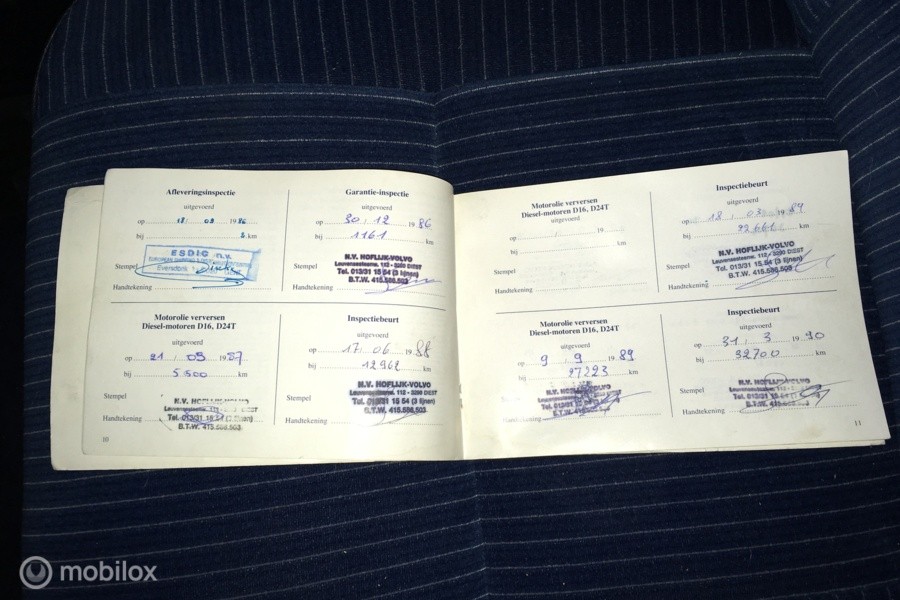 Afleveringsinspectie
uitgevoerd
op 18 / 09 1986
bij 5 km
ESDIC n.v.
Stempel
Handtekening
Garantie-inspectie
uitgevoerd
op 30 / 12 1986
bij 1161 km
N.V. HOFLIJK-VOLVO
Leuvensesteenw. 112 - 3290 DIEST
Tel. 013/31 15 54 (3 lijnen)
B.T.W. 415.586.503
Stempel
Handtekening
Motorolie verversen
Diesel-motoren D16, D24T
uitgevoerd
op 21 / 05 1987
bij 5500 km
Stempel
N.V. HOFLIJK-VOLVO
Leuvensesteenw. 112 - 3290 DIEST
Tel. 013/31 15 54 (3 lijnen)
B.T.W. 415.586.503
Handtekening
10
Inspectiebeurt
uitgevoerd
op 17 / 06 1988
bij 12962 km
N.V. HOFLIJK-VOLVO
Leuvensesteenw. 112 - 3290 DIEST
Tel. 013/31 15 54 (3 lijnen)
B.T.W. 415.586.503
Stempel
Handtekening
Motorolie verversen
Diesel-motoren D16, D24T
uitgevoerd
op / 19
bij km
Stempel
Handtekening
Inspectiebeurt
uitgevoerd
op 18 / 03 1989
bij 22661 km
N.V. HOFLIJK-VOLVO
Leuvensesteenw. 112 - 3290 DIEST
Tel. 013/31 15 54 (3 lijnen)
B.T.W. 415.586.503
Stempel
Handtekening
Motorolie verversen
Diesel-motoren D16, D24T
uitgevoerd
op 9 / 9 1989
bij 27223 km
N.V. HOFLIJK-VOLVO
Stempel
Handtekening
Inspectiebeurt
uitgevoerd
op 31 / 3 1990
bij 32700 km
N.V. HOFLIJK-VOLVO
Stempel
Handtekening
11
mobilox